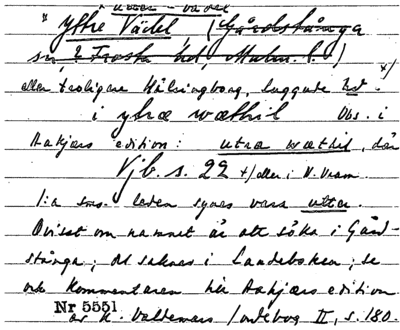 utter - vadel
" Yttre Vädel, (Gårdstånga
sn, i Frosta hd, Malm. l.)
eller troligare Hälsingborg, Luggude hd x)
i ytræ wæthil Obs. i
Aakjærs edition: utræ wæthil, där
Vjb. s. 22 x) eller i N. Vram
1:a sms.leden synes vara utter.
Ovisst om namnet är att söka i Gård-
stånga; det saknas i Landeboken; se
ock kommentaren till Aakjærs edition
Nr 5551
av K. Valdemars Jordebog II, s. 180.